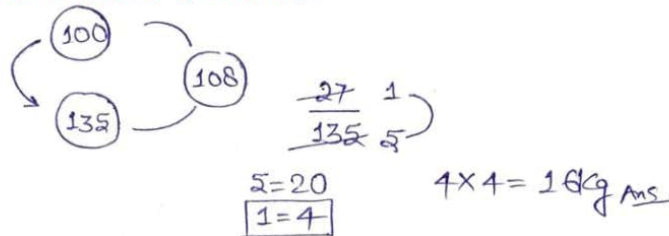 100
108
135
27 1
135 5
5=20
1=4
4×4=16Kg Ans